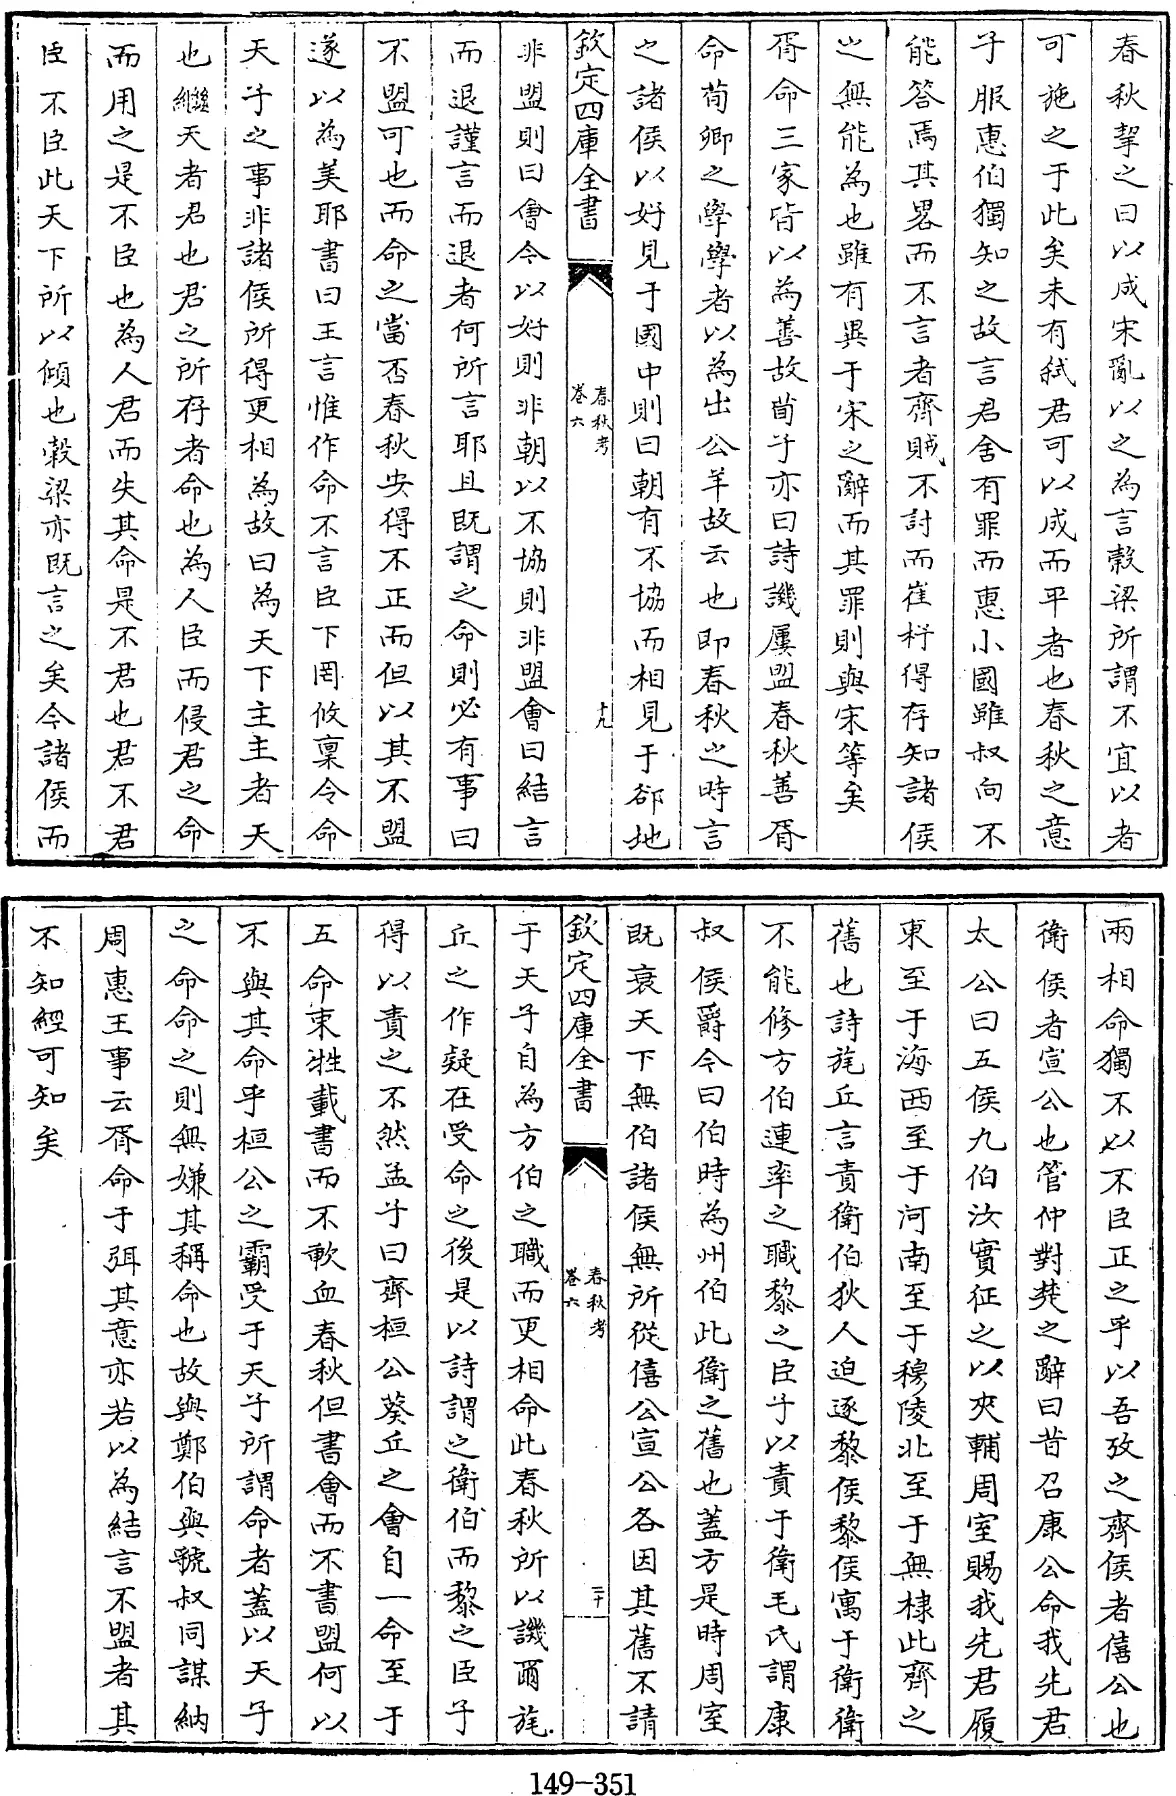 春秋挈之曰以成宋亂以之為言穀梁所謂不宜以者
可施之于此矣未有弒君可以成而平者也春秋之意
子服惠伯獨知之故言君舍有罪而惠小國雖叔向不
能答焉其畧而不言者齊賊不討而崔杼得存知諸侯
之無能為也雖有異于宋之辭而其罪則與宋等矣
胥命三家皆以為善故荀子亦曰詩譏屢盟春秋善胥
命荀卿之學學者以為出公羊故云也即春秋之時言
之諸侯以好見于國中則曰朝有不協而相見于郤地
欽定四庫全書
春秋考
卷六
十九
非盟則曰會今以好則非朝以不協則非盟會曰結言
而退謹言而退者何所言耶且既謂之命則必有事曰
不盟可也而命之當否春秋安得不正而但以其不盟
遂以為美耶書曰王言惟作命不言臣下罔攸稟令命
天子之事非諸侯所得更相為故曰為天下主主者天
也繼天者君也君之所存者命也為人臣而侵君之命
而用之是不臣也為人君而失其命是不君也君不君
臣不臣此天下所以傾也穀梁亦既言之矣今諸侯而
兩相命獨不以不臣正之乎以吾攷之齊侯者僖公也
衛侯者宣公也管仲對楚之辭曰昔召康公命我先君
太公曰五侯九伯汝實征之以夾輔周室賜我先君履
東至于海西至于河南至于穆陵北至于無棣此齊之
舊也詩旄丘言責衛伯狄人迫逐黎侯黎侯寓于衛衛
不能修方伯連率之職黎之臣子以責于衛毛氏謂康
叔侯爵今曰伯時為州伯此衛之舊也蓋方是時周室
既衰天下無伯諸侯無所從僖公宣公各因其舊不請
欽定四庫全書
春秋考
卷六
二十
于天子自為方伯之職而更相命此春秋所以譏爾旄
丘之作疑在受命之後是以詩謂之衛伯而黎之臣子
得以責之不然孟子曰齊桓公葵丘之會自一命至于
五命束牲載書而不歃血春秋但書會而不書盟何以
不與其命乎桓公之霸受于天子所謂命者蓋以天子
之命命之則無嫌其稱命也故與鄭伯與虢叔同謀納
周惠王事云胥命于弭其意亦若以為結言不盟者其
不知經可知矣
149-351